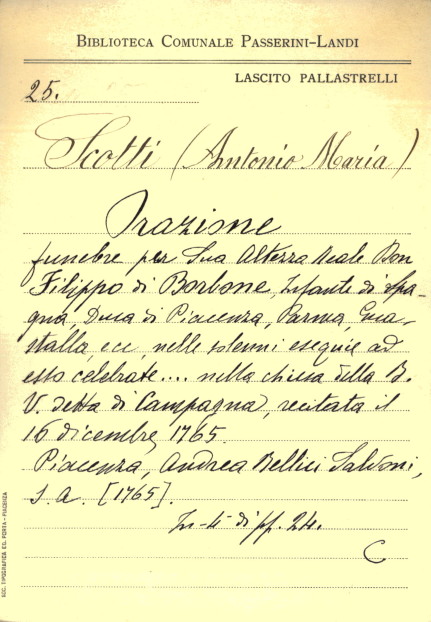 BIBLIOTECA COMUNALE PASSERINI-LANDI
LASCITO PALLASTRELLI
25.
Scotti (Antonio Maria)
Orazione
funebre per Sua Altezza Reale Don
Filippo di Borbone, Infante di Spa-
gna, Duca di Piacenza, Parma, Gua-
stalla, ecc, nelle solenni esequie ad
esso celebrate.... nella chiesa della B.
V. detta di Campagna, recitata il
16 dicembre 1765.
Piacenza, Andrea Bellici Salvoni,
s. a. [1765].
In-4° di pp. 24.
C
SOC. TIPOGRAFICA ED. PORTA - PIACENZA